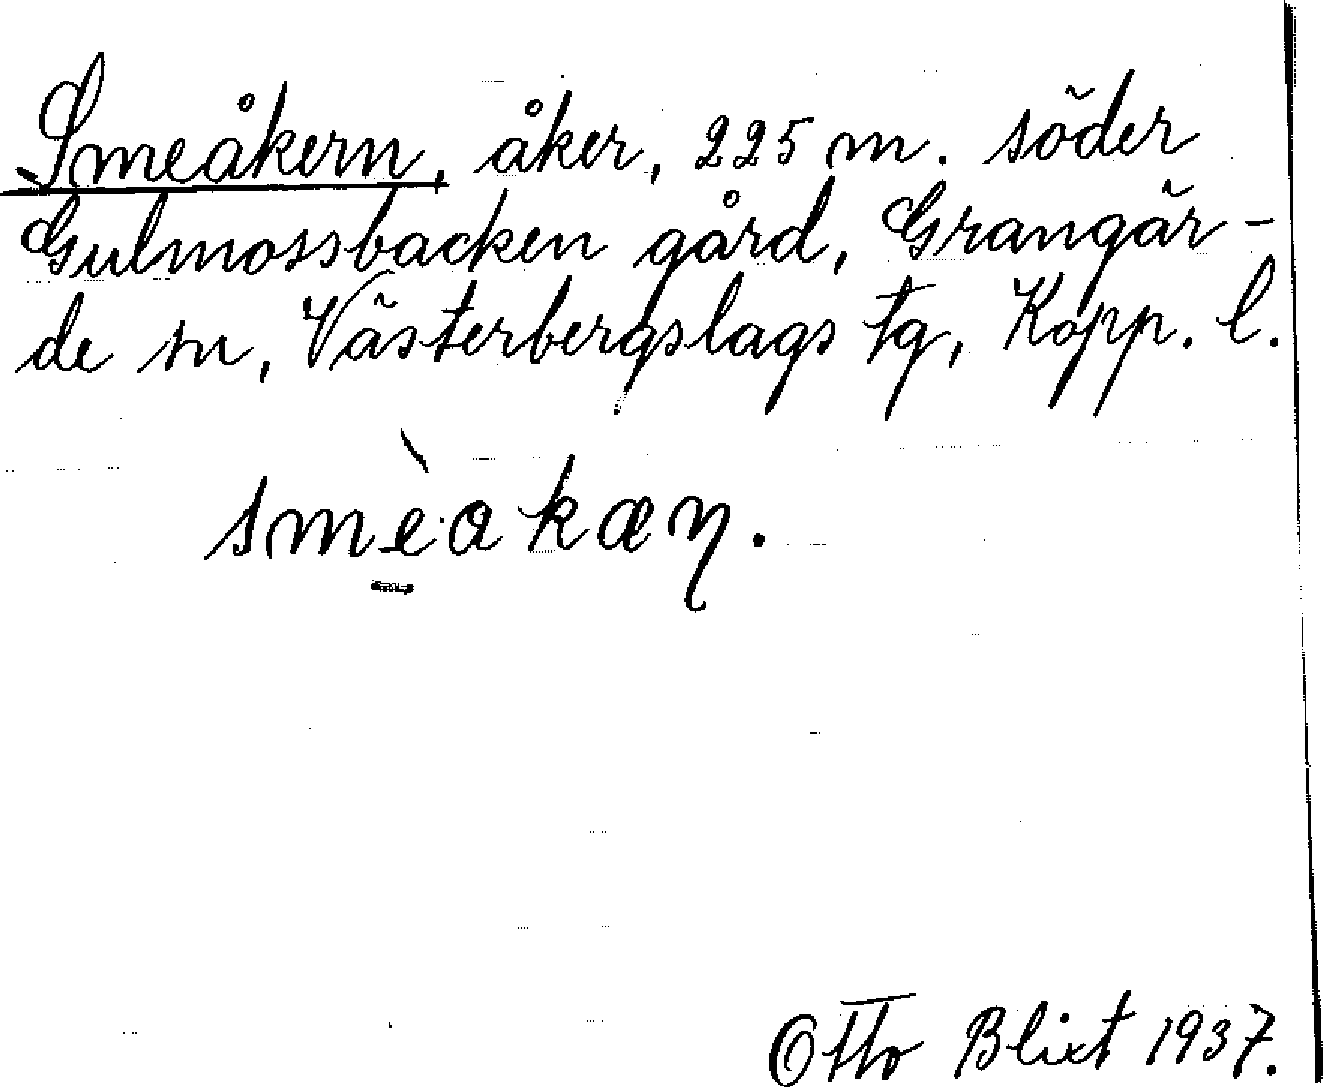 Smeåkern, åker, 225 m. söder
Gulmossbacken gård, Grangär-
de sn, Västerbergslags tg, Kopp. l.
smèakæṇ.
Otto Blixt 1937.